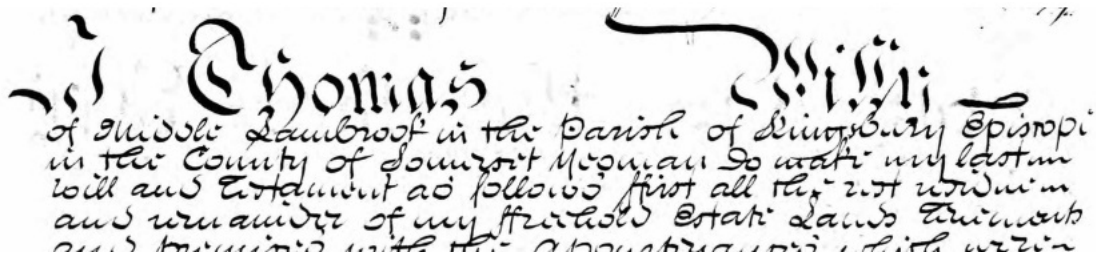 I Thomas Willy
of Middle Lambrook in the Parish of Kingsbury Episcopi
in the County of Somerset Yeoman Do make my last
will and Testament as follows ffirst all the rest residue
and remainder of my ffreehold Estate Lands Tenements
and premises with the Appurtenances which were